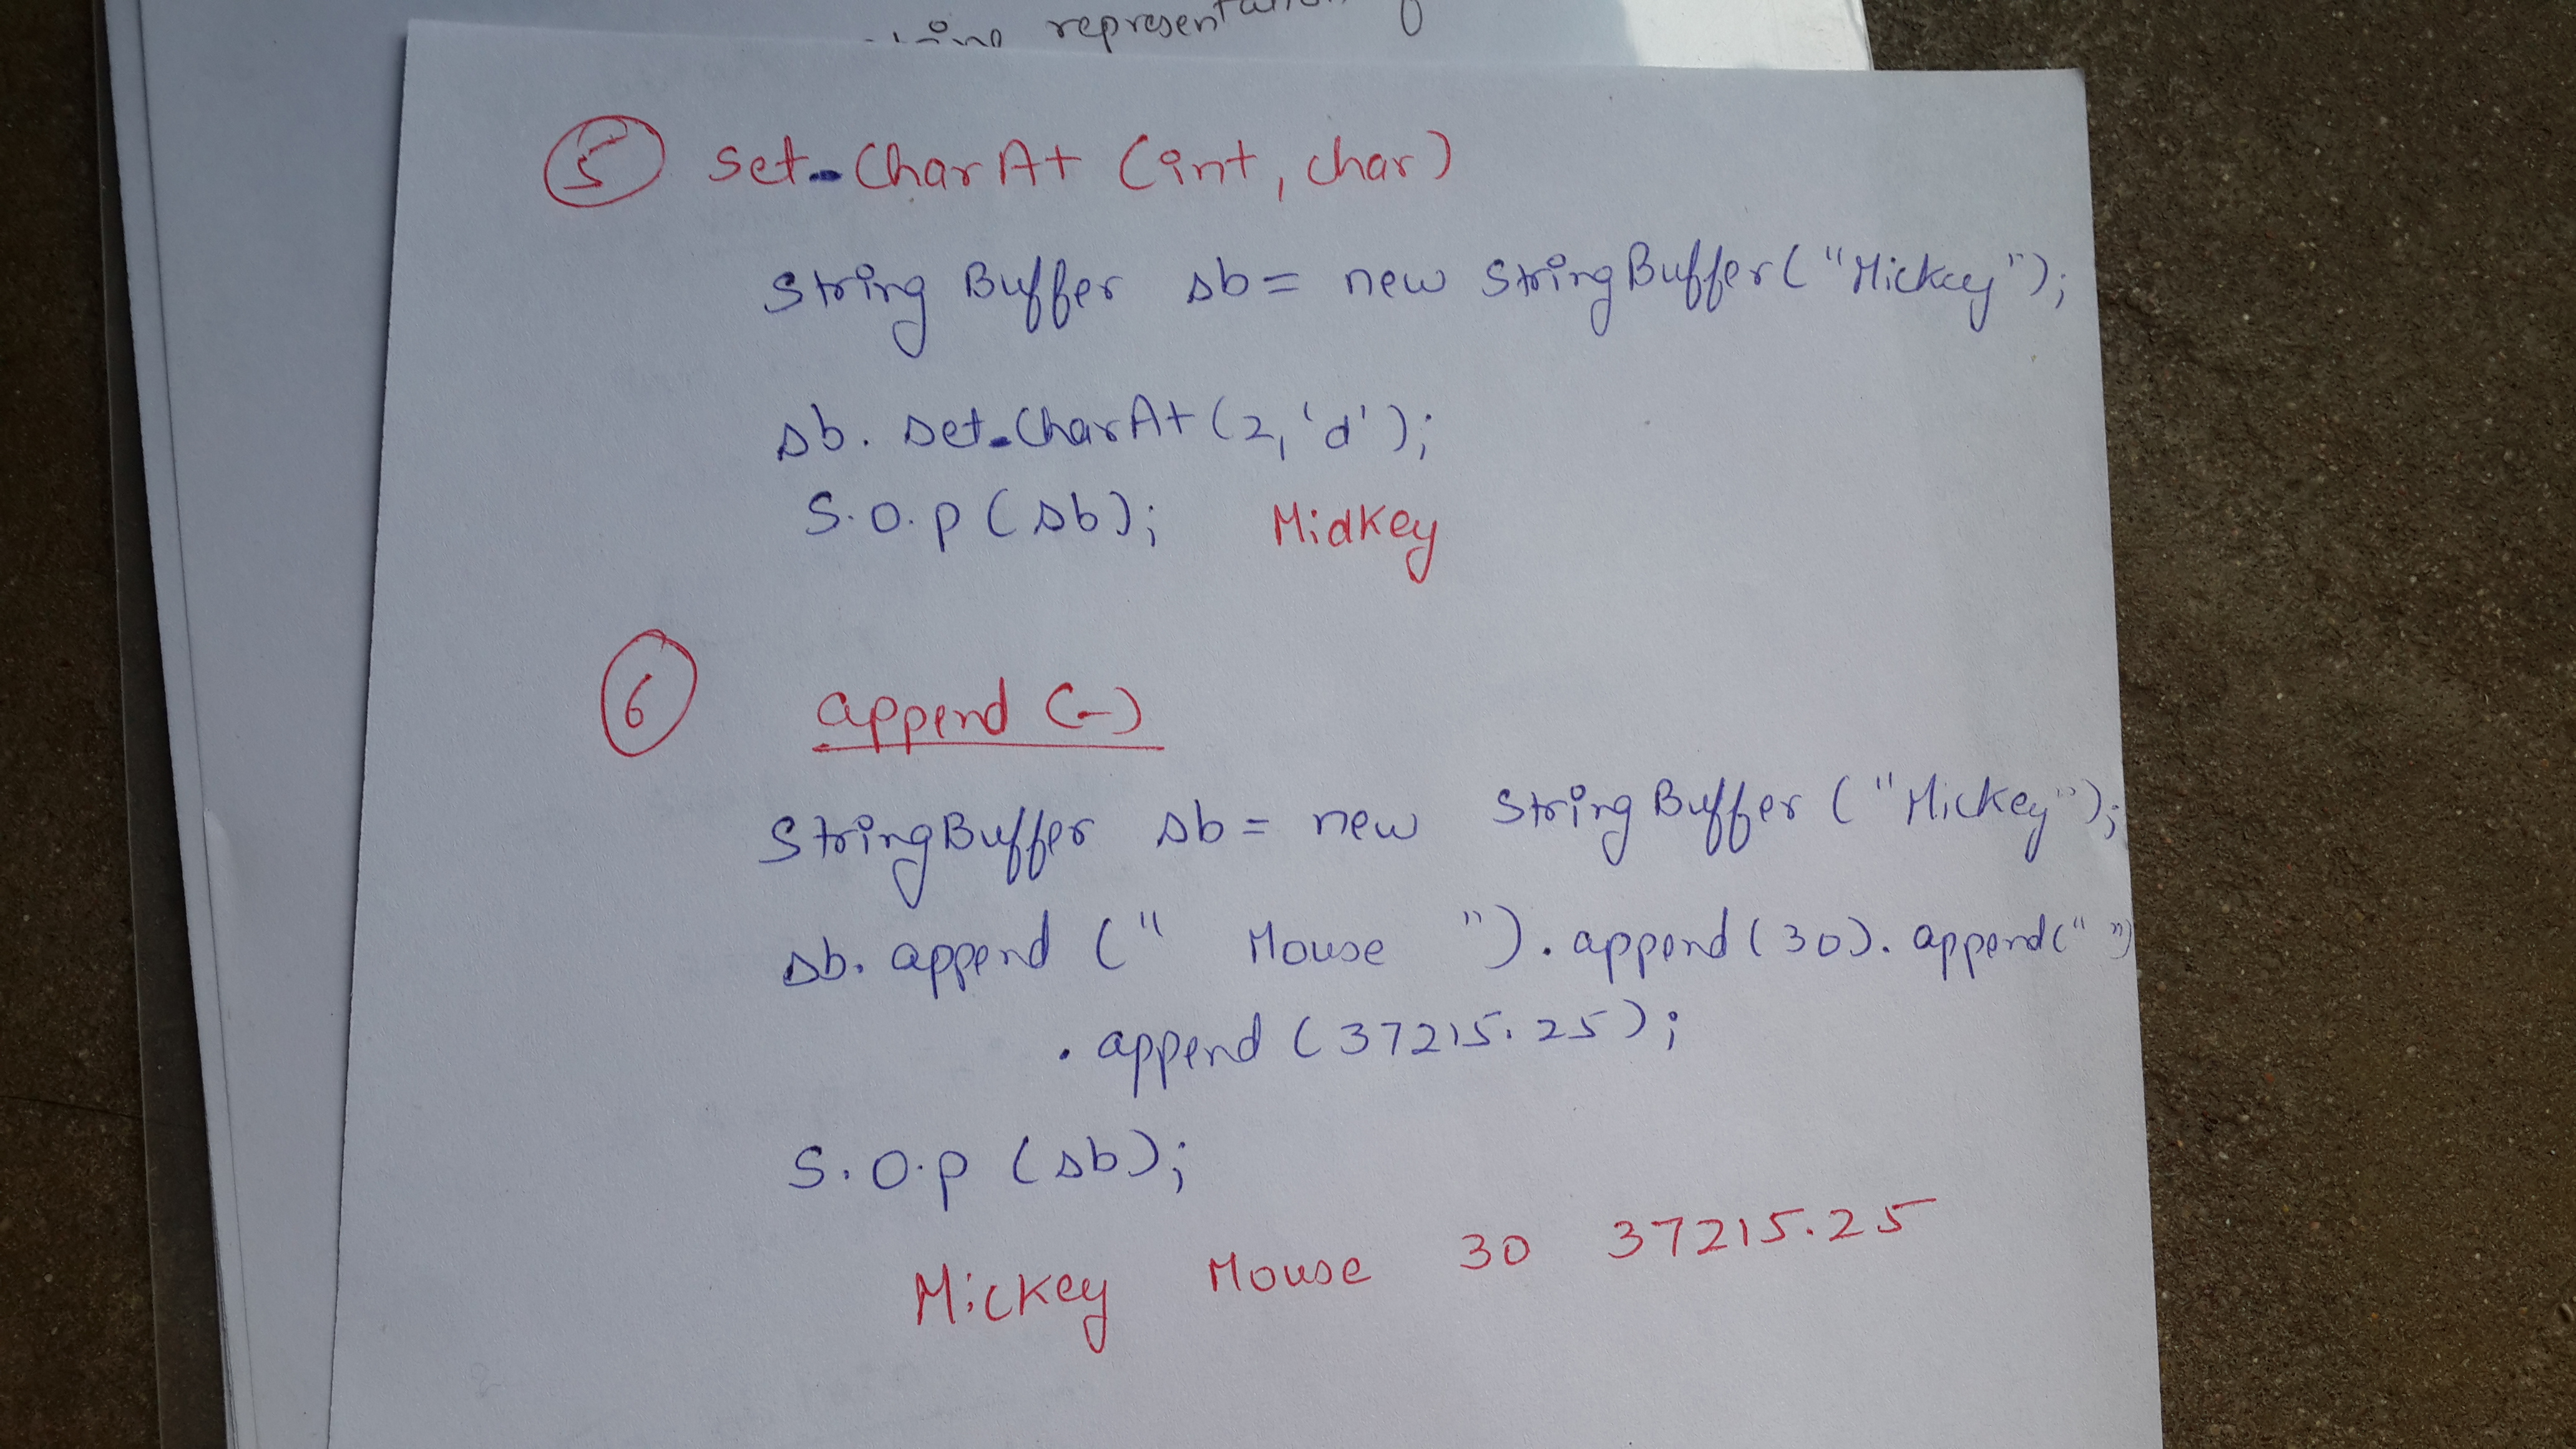 representation
⑤ set-CharAt (int, char)
String Buffer sb = new StringBuffer("Mickey");
sb. set-CharAt (2, 'd');
S.O.p (sb); Midkey
⑥ append (-)
StringBuffer sb = new StringBuffer ("Mickey");
sb. append (" Mouse "). append (30). append (" ")
. append (37215.25);
S.O.p (sb);
Mickey Mouse 30 37215.25